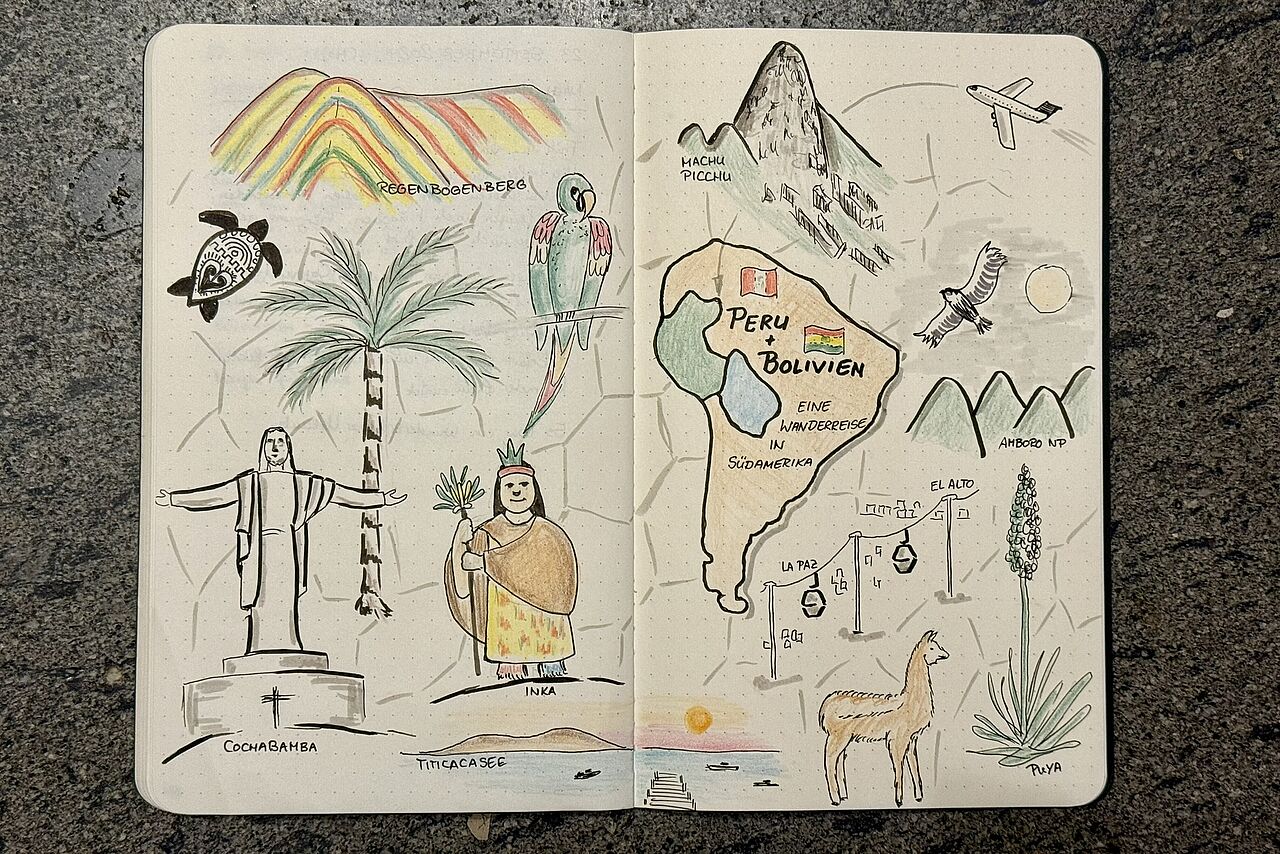 REGENBOGENBERG
COCHABAMBA
INKA
TITICACASEE
MACHU
PICCHU
PERU
+
BOLIVIEN
EINE
WANDERREISE
IN
SÜDAMERIKA
AMBORO NP
EL ALTO
LA PAZ
PUYA